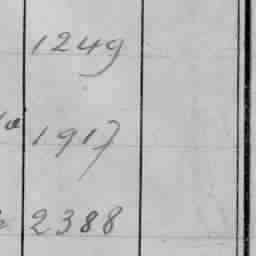 1249
1917
2388